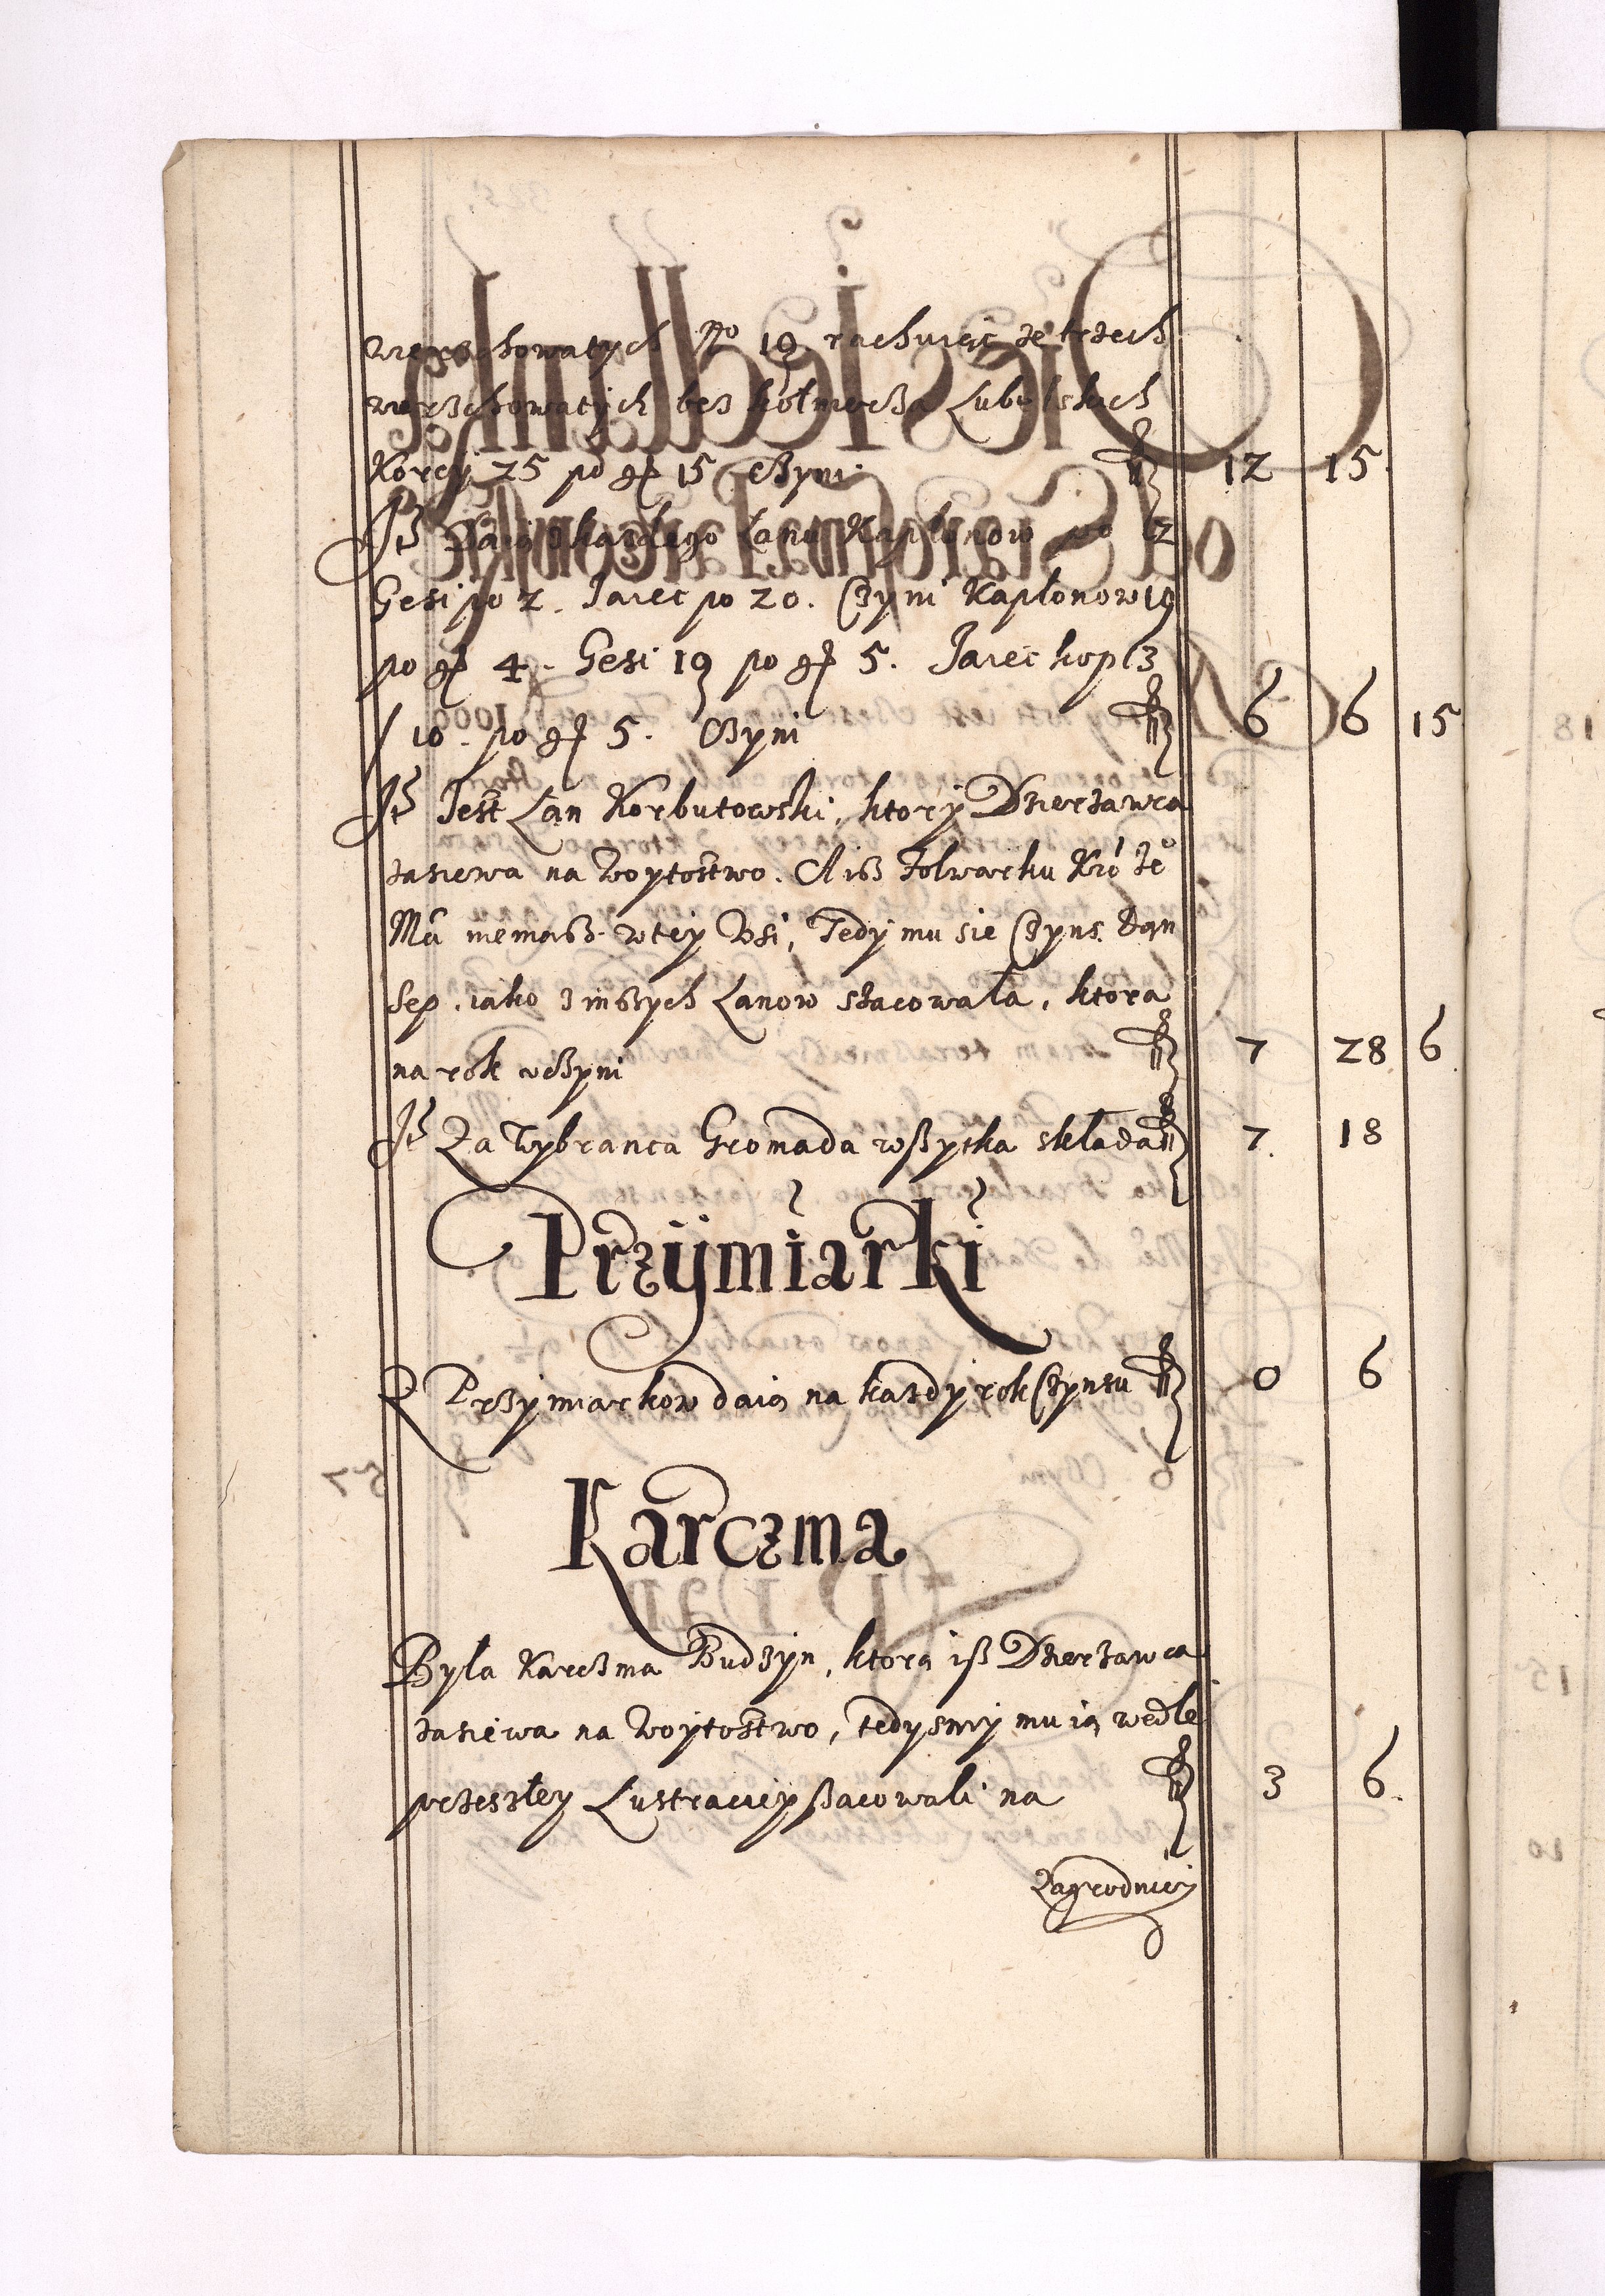 wierzchowatych No 19 rachuiąc ze trzech
wierzchowatych bes kołnierza Lubelskich
Korcy 25 po g 15 czyni fl 12 15
It Daią z każdego Łanu Kapłonow po 2
Gesi po 2. Jaiec po 20. Czyni Kapłonow 19
po g 4. Gesi 19 po g 5. Jaiec kop 3
/ 10. po g 5. Czyni fl 6 6 15
It Jest Łan Korbutowski, ktory Dzierzawca
zasiewa na Woytostwo. A isz Folwarku Kró Je
Mci niemasz w tey Wsi, Tedy mu sie Czyns. Dan
Sep. iako z inszych Łanow szacowała, ktora
na rok uczyni fl 7 28 6
It Za Wybranca Gromada wszytka składa fl 7. 18
Przymiarki
Z Przymiarkow daią na kazdy rok Czynsu fl 0 6
Karczma
Była Karczma Budzyn, ktorą isz Dzierzawca
zasiewa na Woytostwo, tedysmy mu ią wedle
przeszłey Lustracyey szacowali na fl 3 6.
Zagrodnicy